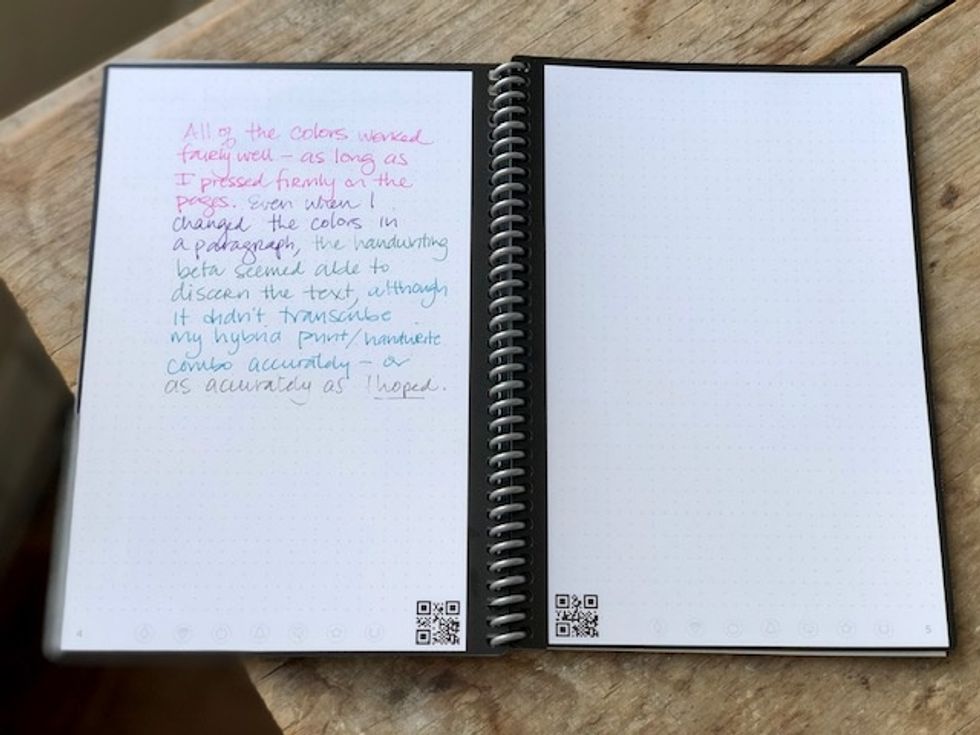 All of the colors worked
fairly well – as long as
I pressed firmly on the
pages. Even when I
changed the colors in
a paragraph, the handwriting
beta seemed able to
discern the text, although
it didn't transcribe
my hybrid print/handwrite
combo accurately – or
as accurately as I hoped.
4
5